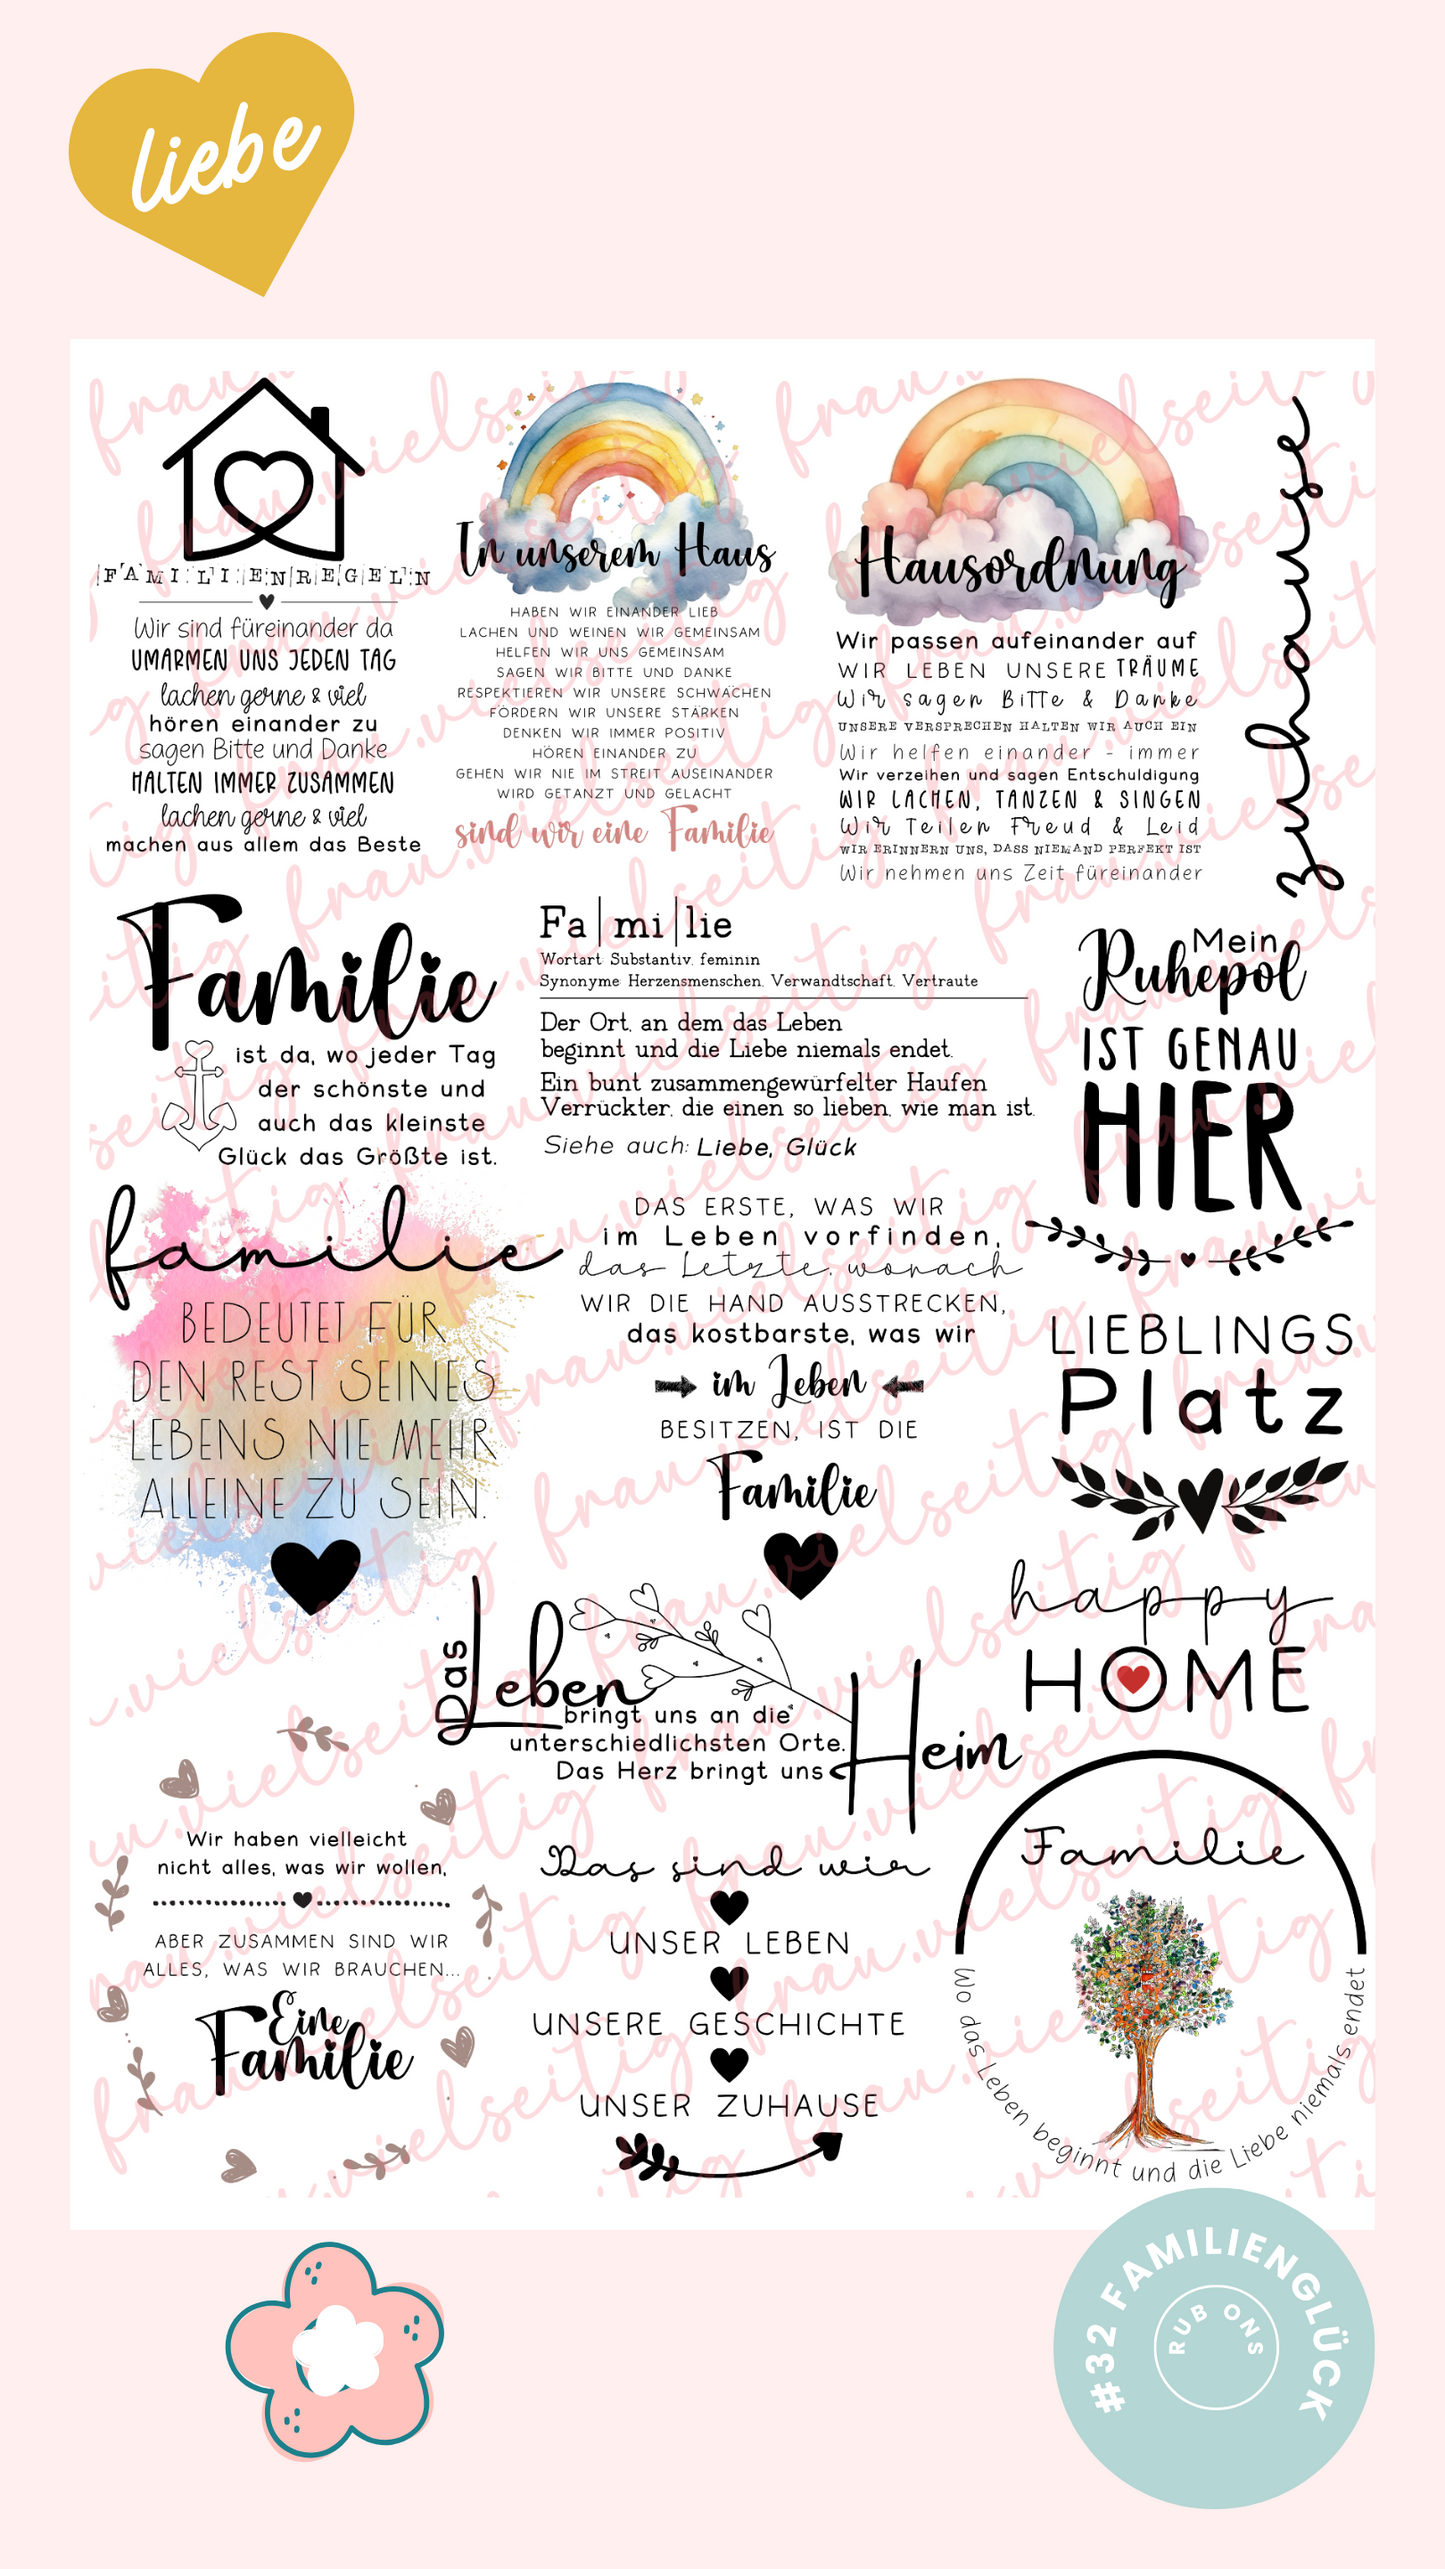 liebe
FAMILIENREGELN
Wir sind füreinander da
UMARMEN UNS JEDEN TAG
lachen gerne & viel
hören einander zu
sagen Bitte und Danke
HALTEN IMMER ZUSAMMEN
lachen gerne & viel
machen aus allem das Beste
In unserem Haus
HABEN WIR EINANDER LIEB
LACHEN UND WEINEN WIR GEMEINSAM
HELFEN WIR UNS GEMEINSAM
SAGEN WIR BITTE UND DANKE
RESPEKTIEREN WIR UNSERE SCHWÄCHEN
FÖRDERN WIR UNSERE STÄRKEN
DENKEN WIR IMMER POSITIV
HÖREN EINANDER ZU
GEHEN WIR NIE IM STREIT AUSEINANDER
WIRD GETANZT UND GELACHT
sind wir eine Familie
Hausordnung
Wir passen aufeinander auf
WIR LEBEN UNSERE TRÄUME
Wir sagen Bitte & Danke
UNSERE VERSPRECHEN HALTEN WIR AUCH EIN
Wir helfen einander - immer
Wir verzeihen und sagen Entschuldigung
WIR LACHEN, TANZEN & SINGEN
Wir Teilen Freud & Leid
WIR ERINNERN UNS, DASS NIEMAND PERFEKT IST
Wir nehmen uns Zeit füreinander
zuhause
Familie
ist da, wo jeder Tag
der schönste und
auch das kleinste
Glück das Größte ist.
Fa|mi|lie
Wortart: Substantiv, feminin
Synonyme: Herzensmenschen, Verwandtschaft, Vertraute
Der Ort, an dem das Leben
beginnt und die Liebe niemals endet.
Ein bunt zusammengewürfelter Haufen
Verrückter, die einen so lieben, wie man ist.
Siehe auch: Liebe, Glück
Mein
Ruhepol
IST GENAU
HIER
familie
BEDEUTET FÜR
DEN REST SEINES
LEBENS NIE MEHR
ALLEINE ZU SEIN.
DAS ERSTE, WAS WIR
im Leben vorfinden,
das Letzte, wonach
WIR DIE HAND AUSSTRECKEN,
das kostbarste, was wir
im Leben
BESITZEN, IST DIE
Familie
LIEBLINGS
Platz
happy
HOME
Das
Leben
bringt uns an die
unterschiedlichsten Orte.
Das Herz bringt uns
Heim
Wir haben vielleicht
nicht alles, was wir wollen,
ABER ZUSAMMEN SIND WIR
ALLES, WAS WIR BRAUCHEN...
Eine
Familie
Das sind wir
UNSER LEBEN
UNSERE GESCHICHTE
UNSER ZUHAUSE
Familie
Wo das Leben beginnt und die Liebe niemals endet
#32 FAMILIENGLÜCK
RUB ONS
frau.vielseitig